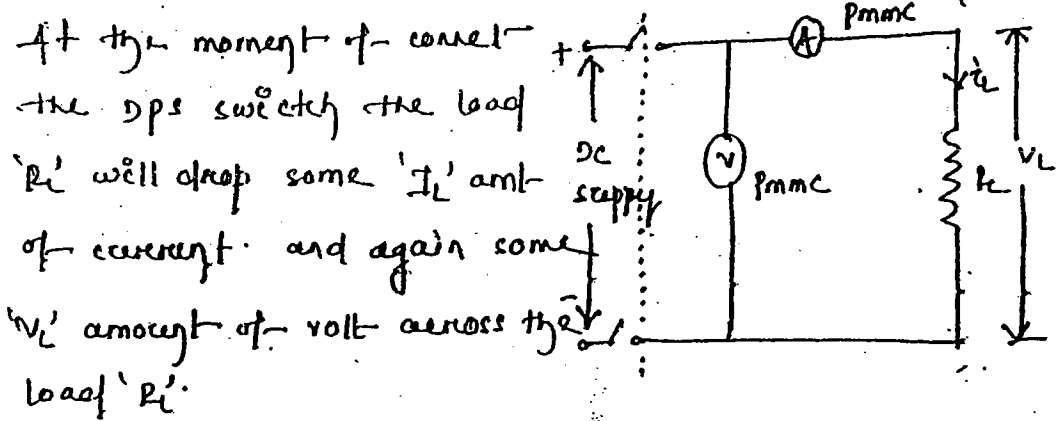 At the moment of connet
the DPS switch the load
'RL' will drop some 'IL' amt
of current. and again some
'VL' amount of volt across the
load 'RL'.
PMMC
A
+
iL
DC
supply
V
PMMC
RL
VL
-